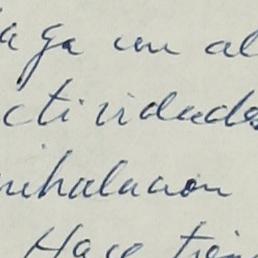 haga un al
ctividades
nihalacion
Hace tiem